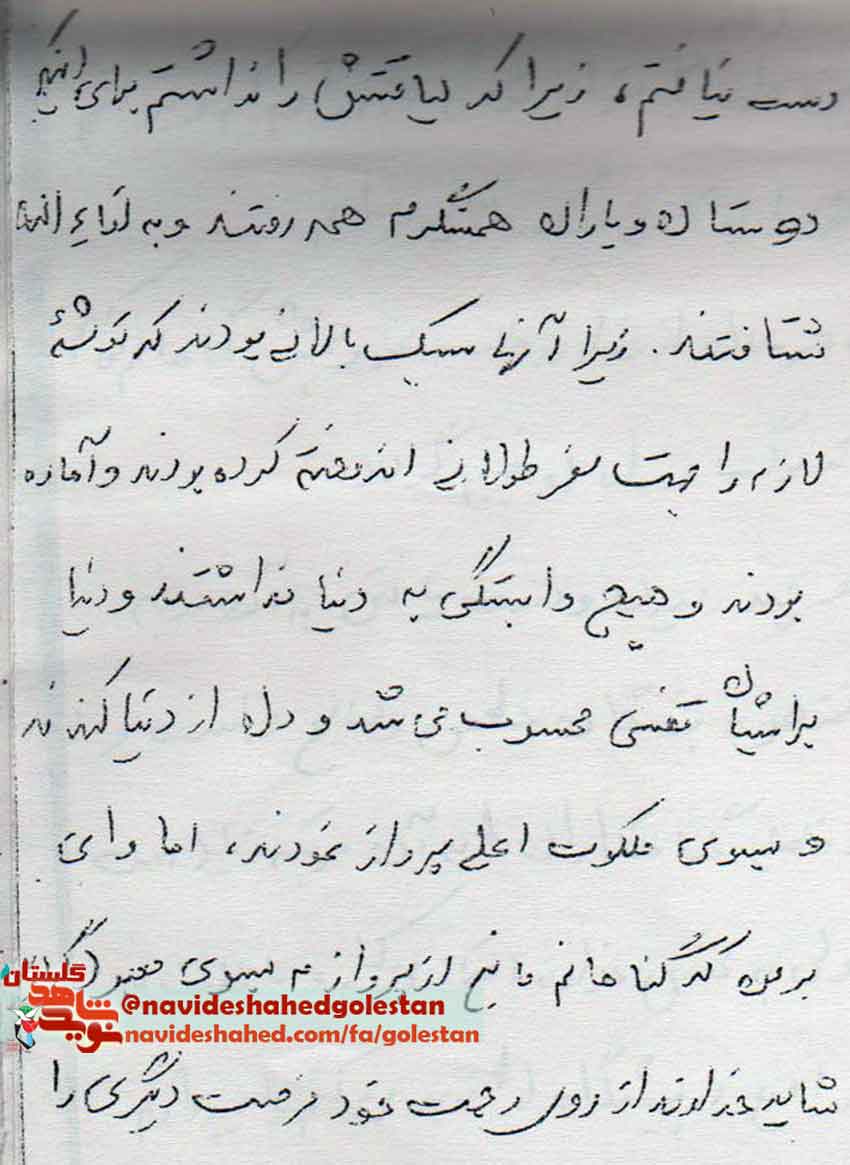 دست نیافتم، زیرا که لیاقتش را نداشتم برای اینکه
دوستان و یاران همسنگرم همه رفتند و به لقاء الله
شتافتند. زیرا آنها سبک بالانی بودند که توشهٔ
لازم را جهت سفر طولانی اندوخته کرده بودند و آماده
بودند و هیچ وابستگی به دنیا نداشتند و دنیا
برایشان قفسی محسوب می شد و دل از دنیا کندند
و بسوی ملکوت اعلی پرواز نمودند، اما وای
بر من که گناهانم مانع از پروازم بسوی معبود
گلستان
نوید شاهد
@navideshahedgolestan
navideshahed.com/fa/golestan
شاید خداوند از روی رحمت خود فرصت دیگری را